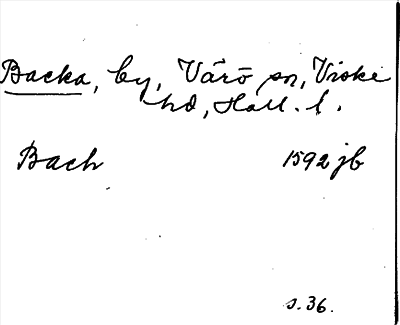 Backa, by, Värö sn, Viske
hd, Hall. l.
Bach 1592 jb
s. 36.